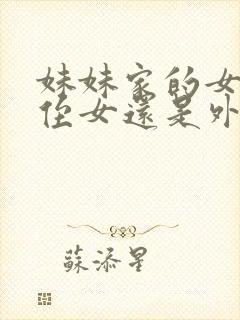 妹妹家的女
侄女還是外
蘇添星